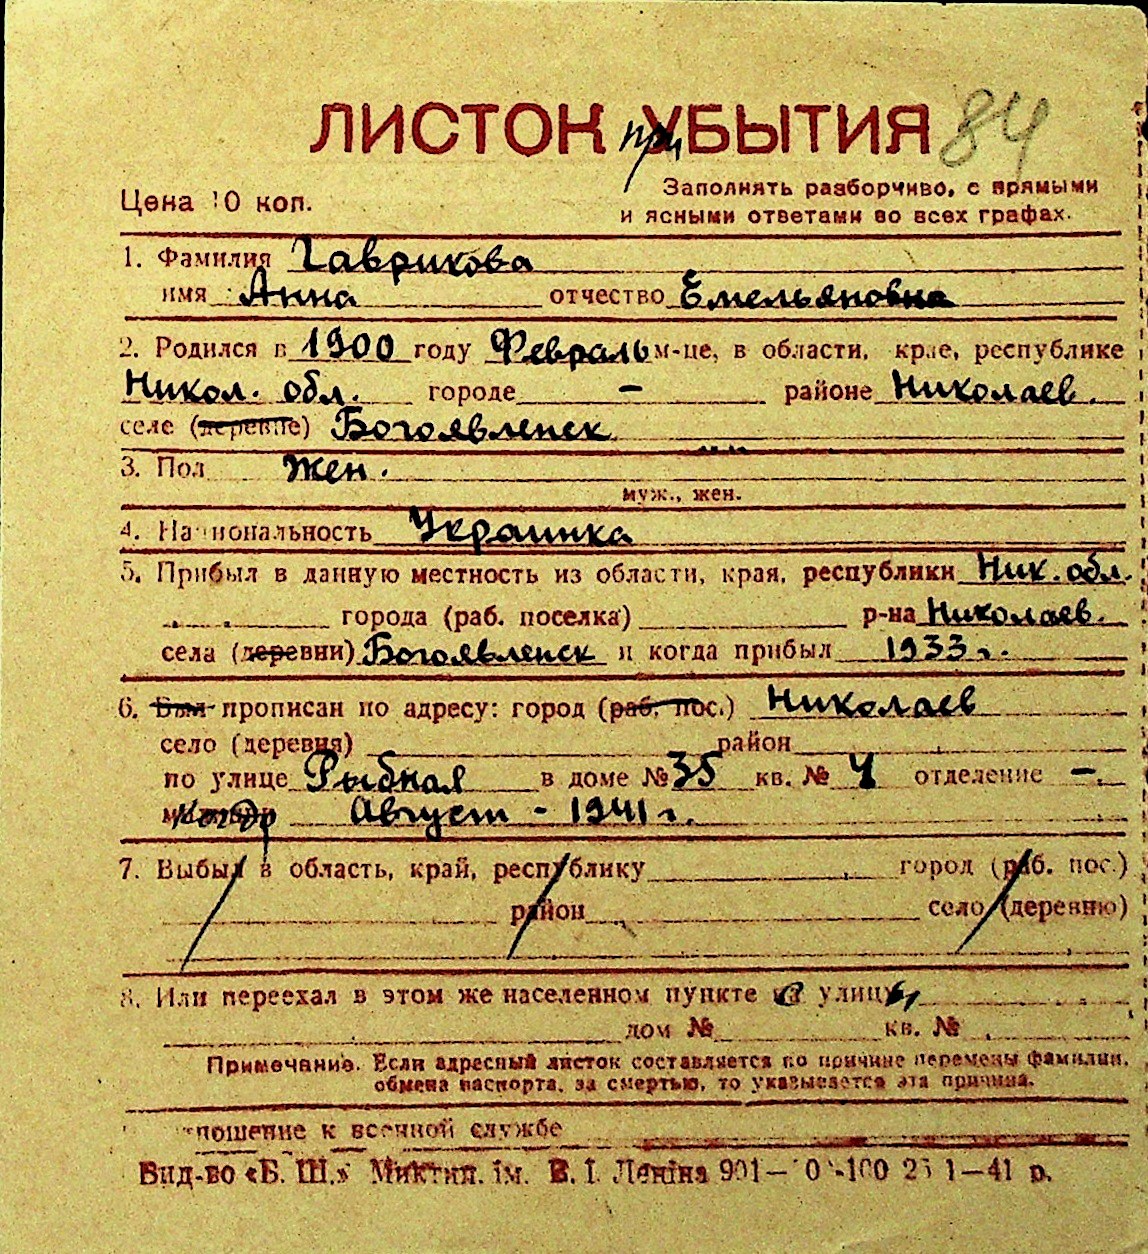 ЛИСТОК при УБЫТИЯ 84
Цена 10 коп.
Заполнять разборчиво, с прямыми
и ясными ответами во всех графах.
1. Фамилия Гаврикова
имя Анна отчество Емельяновна
2. Родился в 1900 году Февраль м-це, в области, крае, республике
Никол. обл. городе - районе Николаев.
селе (деревне) Богоявленск
3. Пол жен.
муж., жен.
4. Национальность Украинка
5. Прибыл в данную местность из области, края, республики Ник. обл.
города (раб. поселка) р-на Николаев.
села (деревни) Богоявленск и когда прибыл 1933 г.
6. Был прописан по адресу: город (раб. пос.) Николаев
село (деревня) район
по улице Рыбная в доме № 35 кв. № 4 отделение -.
когда Август - 1941 г.
7. Выбыл в область, край, республику город (раб. пос.)
район село (деревню)
8. Или переехал в этом же населенном пункте с улицы
дом № кв. №
Примечание. Если адресный листок составляется по причине перемены фамилии,
обмена паспорта, за смертью, то указывается эта причина.
тношение к военной службе
Вид-во «Б. Ш.» Миктип. ім. В. І. Леніна 901— 1—41 р.